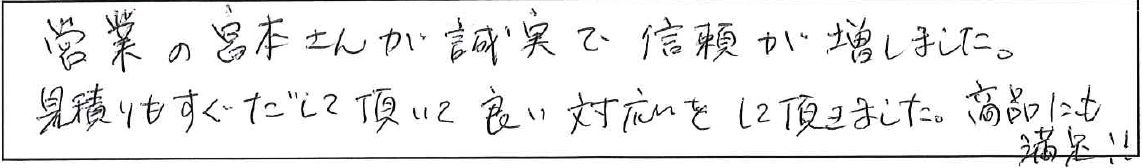 営業の宮本さんが誠実で信頼が増しました。
見積りもすぐだして頂いて良い対応をして頂きました。商品にも
満足!!